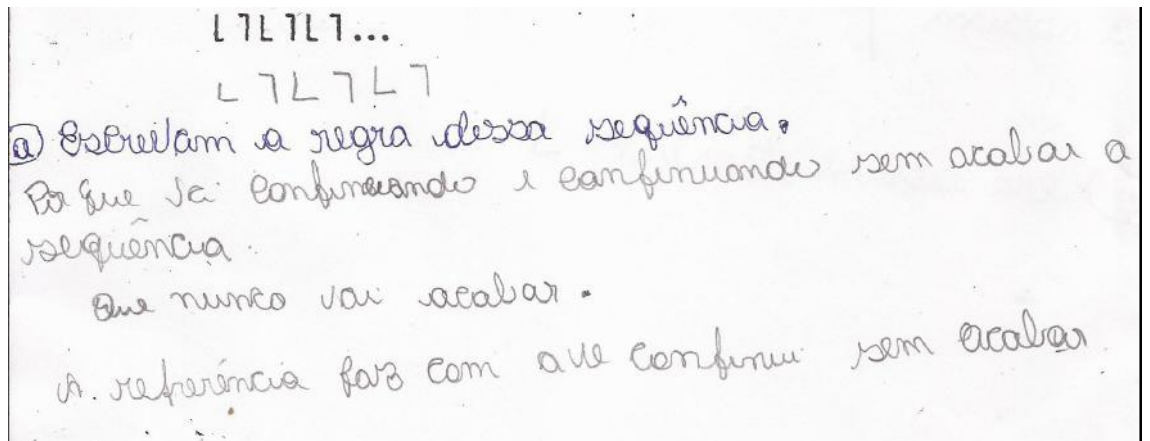 L ⅂ L ⅂ L ⅂ ...
L ⅂ L ⅂ L ⅂
a) Escrevam a regra dessa sequência.
Por que vai continuando e continuando sem acabar a
sequência.
Que nunca vai acabar.
A. referência faz com que continui sem acabar